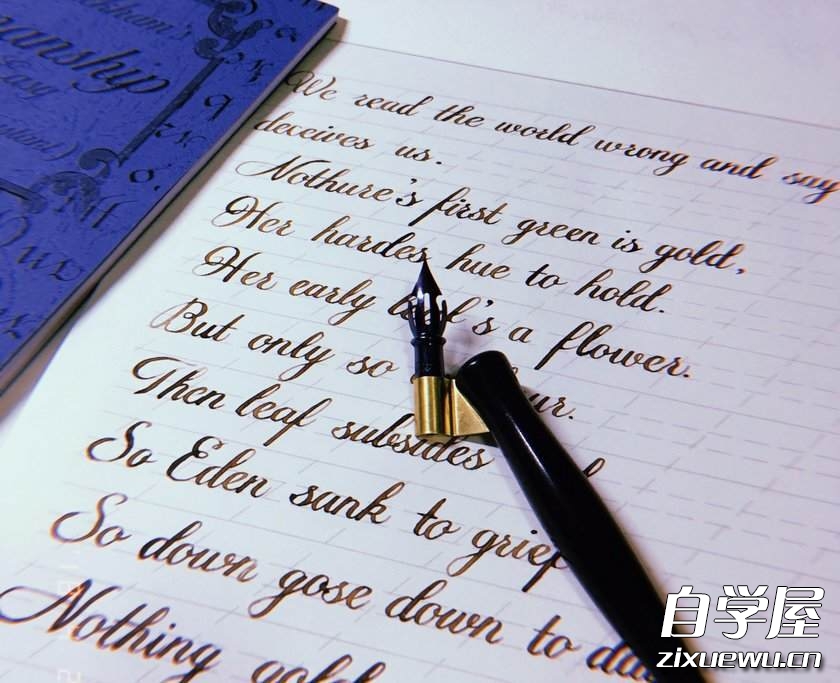 manship
Easy
We read the world wrong and say
deceives us.
Nothure's first green is gold,
Her hardes hue to hold.
Her early 's a flower.
But only so ur.
Then leaf subsides
So Eden sunk to grief
So down gose down to
Nothing gold
自学屋
zixuewu.cn